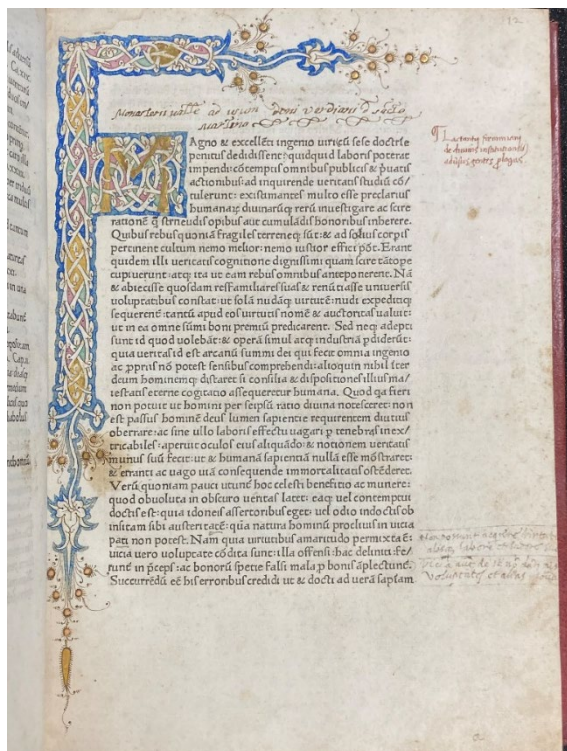 12
Monasterii ad usum
Lactantii firmiani
de divinis institutionibus
adversus gentes
MAgno & excellēti ingenio uiri cū sese doctrīe
penitus dedidissent: quidquid laboris poterat
impendi: cōtemptis omnibus publicis & p̄uatis
actionibus: ad inquirende ueritatis studiū cō/
tulerunt: existimantes multo esse preclarius
humanaꝝ diuinarūq; rerū inuestigare ac scire
rationē q̄ struendis opibus aut cumulādis honoribus inherere.
Quibus rebus quoniā fragiles terreneq; sūt: & ad solius corpis
pertinent cultum nemo melior: nemo iustior effici pōt. Erant
quidem illi ueritatis cognitione dignissimi quam scire tātope
cupiuerunt: atq; ita ut eam rebus omnibus anteponerent. Nā
& abiecisse quosdam res familiares suas & renūtiasse uniuersis
uoluptatibus constat: ut solā nudāq; uirtutē nudi expeditiq;
sequerent: tantū apud eos uirtutis nomē & auctoritas ualuit:
ut in ea omne sūmi boni premiū predicarent. Sed neq; adepti
sunt id quod uolebāt: & operā simul atq; industriā p̄diderūt:
quia ueritas id est arcanū summi dei qui fecit omnia ingenio
ac ppriis nō potest sensibus comprehendi: alioquin nihil iter
deum hominemq; distaret si consilia & dispositiones illius ma/
iestatis eterne cogitatio assequeretur humana. Quod qa fieri
non potuit ut homini per seipsū ratio diuina notesceret: non
est passus hominē deus lumen sapientie requirentem diutius
oberrare: ac sine ullo laboris effectu uagari p tenebras inex/
tricabiles: aperuit oculos eius aliquādo: & notionem ueritatis
munus suū fecit: ut & humanā sapientiā nullā esse mōstraret:
& erranti ac uago uiā consequende immortalitatis ostēderet.
Verū quoniam pauci utunt̄ hoc celesti beneficio ac munere:
quod obuoluta in obscuro ueritas latet: eaq; uel contemptui
doctis est: quia idoneis assertoribus eget: uel odio indoctis ob
insitam sibi austeritatē: quā natura hominū procliuis in uicia
pati non potest. Nam quia uirtutibus amaritudo permixta ē:
uicia uero uoluptate cōdita sunt: illa offensi: hac deliniti: fe/
runt̄ in p̄ceps: ac bonorū spetie falsi mala p bonis āplectunt̄.
Succurrēdū eē his erroribus credidi: ut & docti ad uerā sapīam